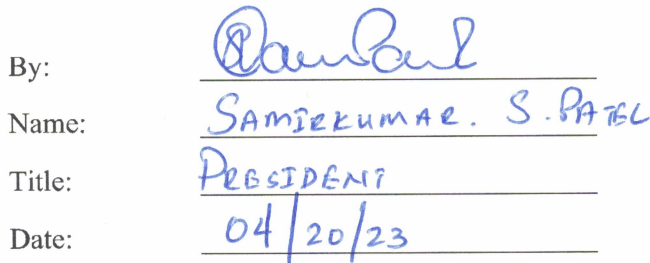 By:
Name: SAMIRKUMAR. S. PATEL
Title: PRESIDENT
Date: 04/20/23